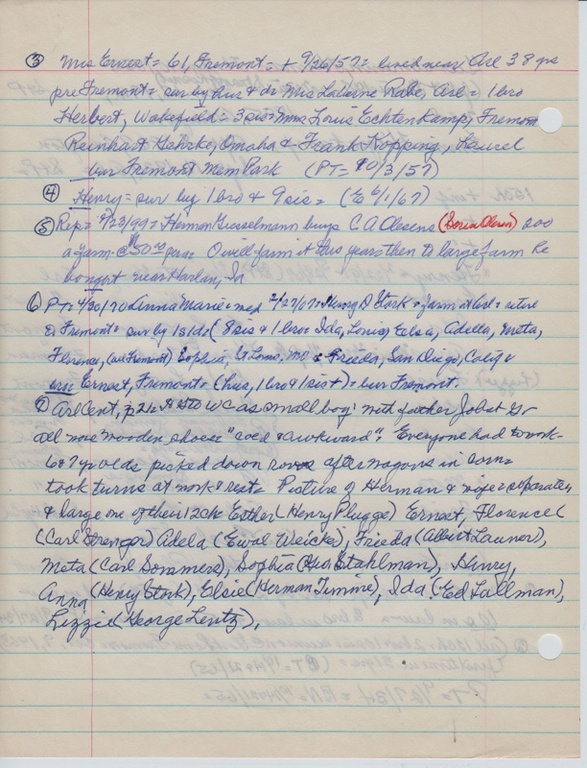 ③ Mrs Ernest = 61, Fremont = + 9/26/57 = lived near Arl 38 yrs
pre Fremont = sur by hus & da Mrs LaVerne Rabe, Arl = 1 bro
Herbert, Wakefield = 3 sis = Mmes Louis Echtenkamp, Fremont
Reinhardt Gehrke, Omaha & Frank Kopping, Laurel
bur Fremont Mem Park (PT = 10/3/57)
④ Henry = sur by 1 bro & 9 sis = (E 6/1/67)
⑤ Rep = 9/23/99 = Herman Gieselmann buys C A Olesens (Soren Olesen) 200
a farm @ $50.00 per a. O will farm it this year then to large farm he
bought near Harlan, Ia
⑥ PT = 4/30/70 Anna Marie = med 2/27/07 = Henry D Stork = farm at Arl = retire
to Fremont = sur by 1s 1da (8 sis & 1 bro = Ida, Louise, Elsie, Adella, Meta,
Florence, (all Fremont) Sophia, St Louis, MO & Frieda, San Diego, Calif &
Ernest, Fremont = (hus, 1 bro & 1 sis +) = bur Fremont.
⑦ Arl Cent, p = to WC as small boy with father Jobst G =
all wore wooden shoes "cold & awkward". Everyone had to work =
6 & 7 yr olds picked down rows after wagons in corn =
took turns at work & rest = Picture of Herman & wife = separately
& large one of their 12 ch Esther (Henry Plugge) Ernest, Florence (
(Carl Strenger) Adela (Ewal Weicke), Frieda (Albert Launer),
Meta (Carl Sommers), Sophia (Stahlman), Henry,
Anna (Henry Stork), Elsie (Herman Timme), Ida (Ed Lallman),
Lizzie (George Lentz).